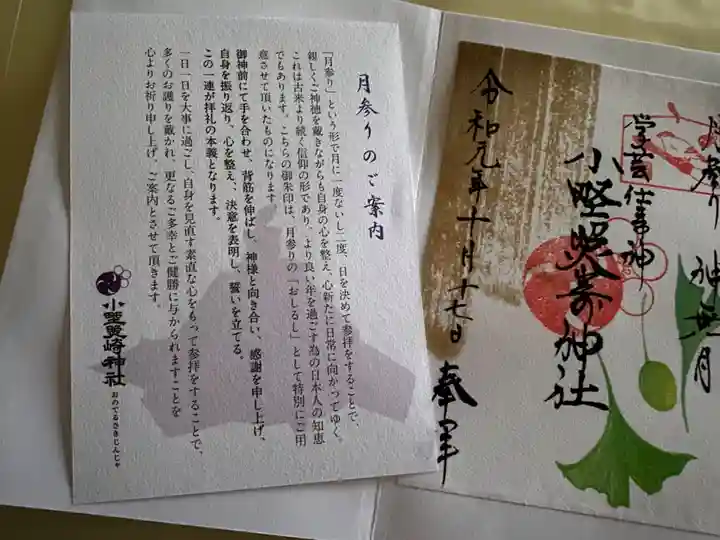 月参りのご案内
「月参り」という形で月に一度ないし二度、日を決めて参拝をすることで、
親しくご神徳を戴きながらも自身の心を整え、心新たに日常に向かってゆく、
これは古来より続く信仰の形であり、より良い年を過ごす為の日本人の知恵
でもあります。こちらの御朱印は、月参りの「おしるし」として特別にご用
意させて頂いたものになります。
御神前にて手を合わせ、背筋を伸ばし、神様と向き合い、感謝を申し上げ、
自身を振り返り、心を整え、、決意を表明し、誓いを立てる。
この一連が拝礼の本義となります。
一日一日を大事に過ごし、自身を見直す素直な心をもって参拝をすることで、
多くのお護りを戴かれ、更なるご多幸とご健勝に与かられますことを
心よりお祈り申し上げ、ご案内とさせて頂きます。
小野照崎神社
おのてるさきじんじゃ
月参り 神無月
学芸仕事神
小野照崎神社
令和元年十月十七日
奉拝